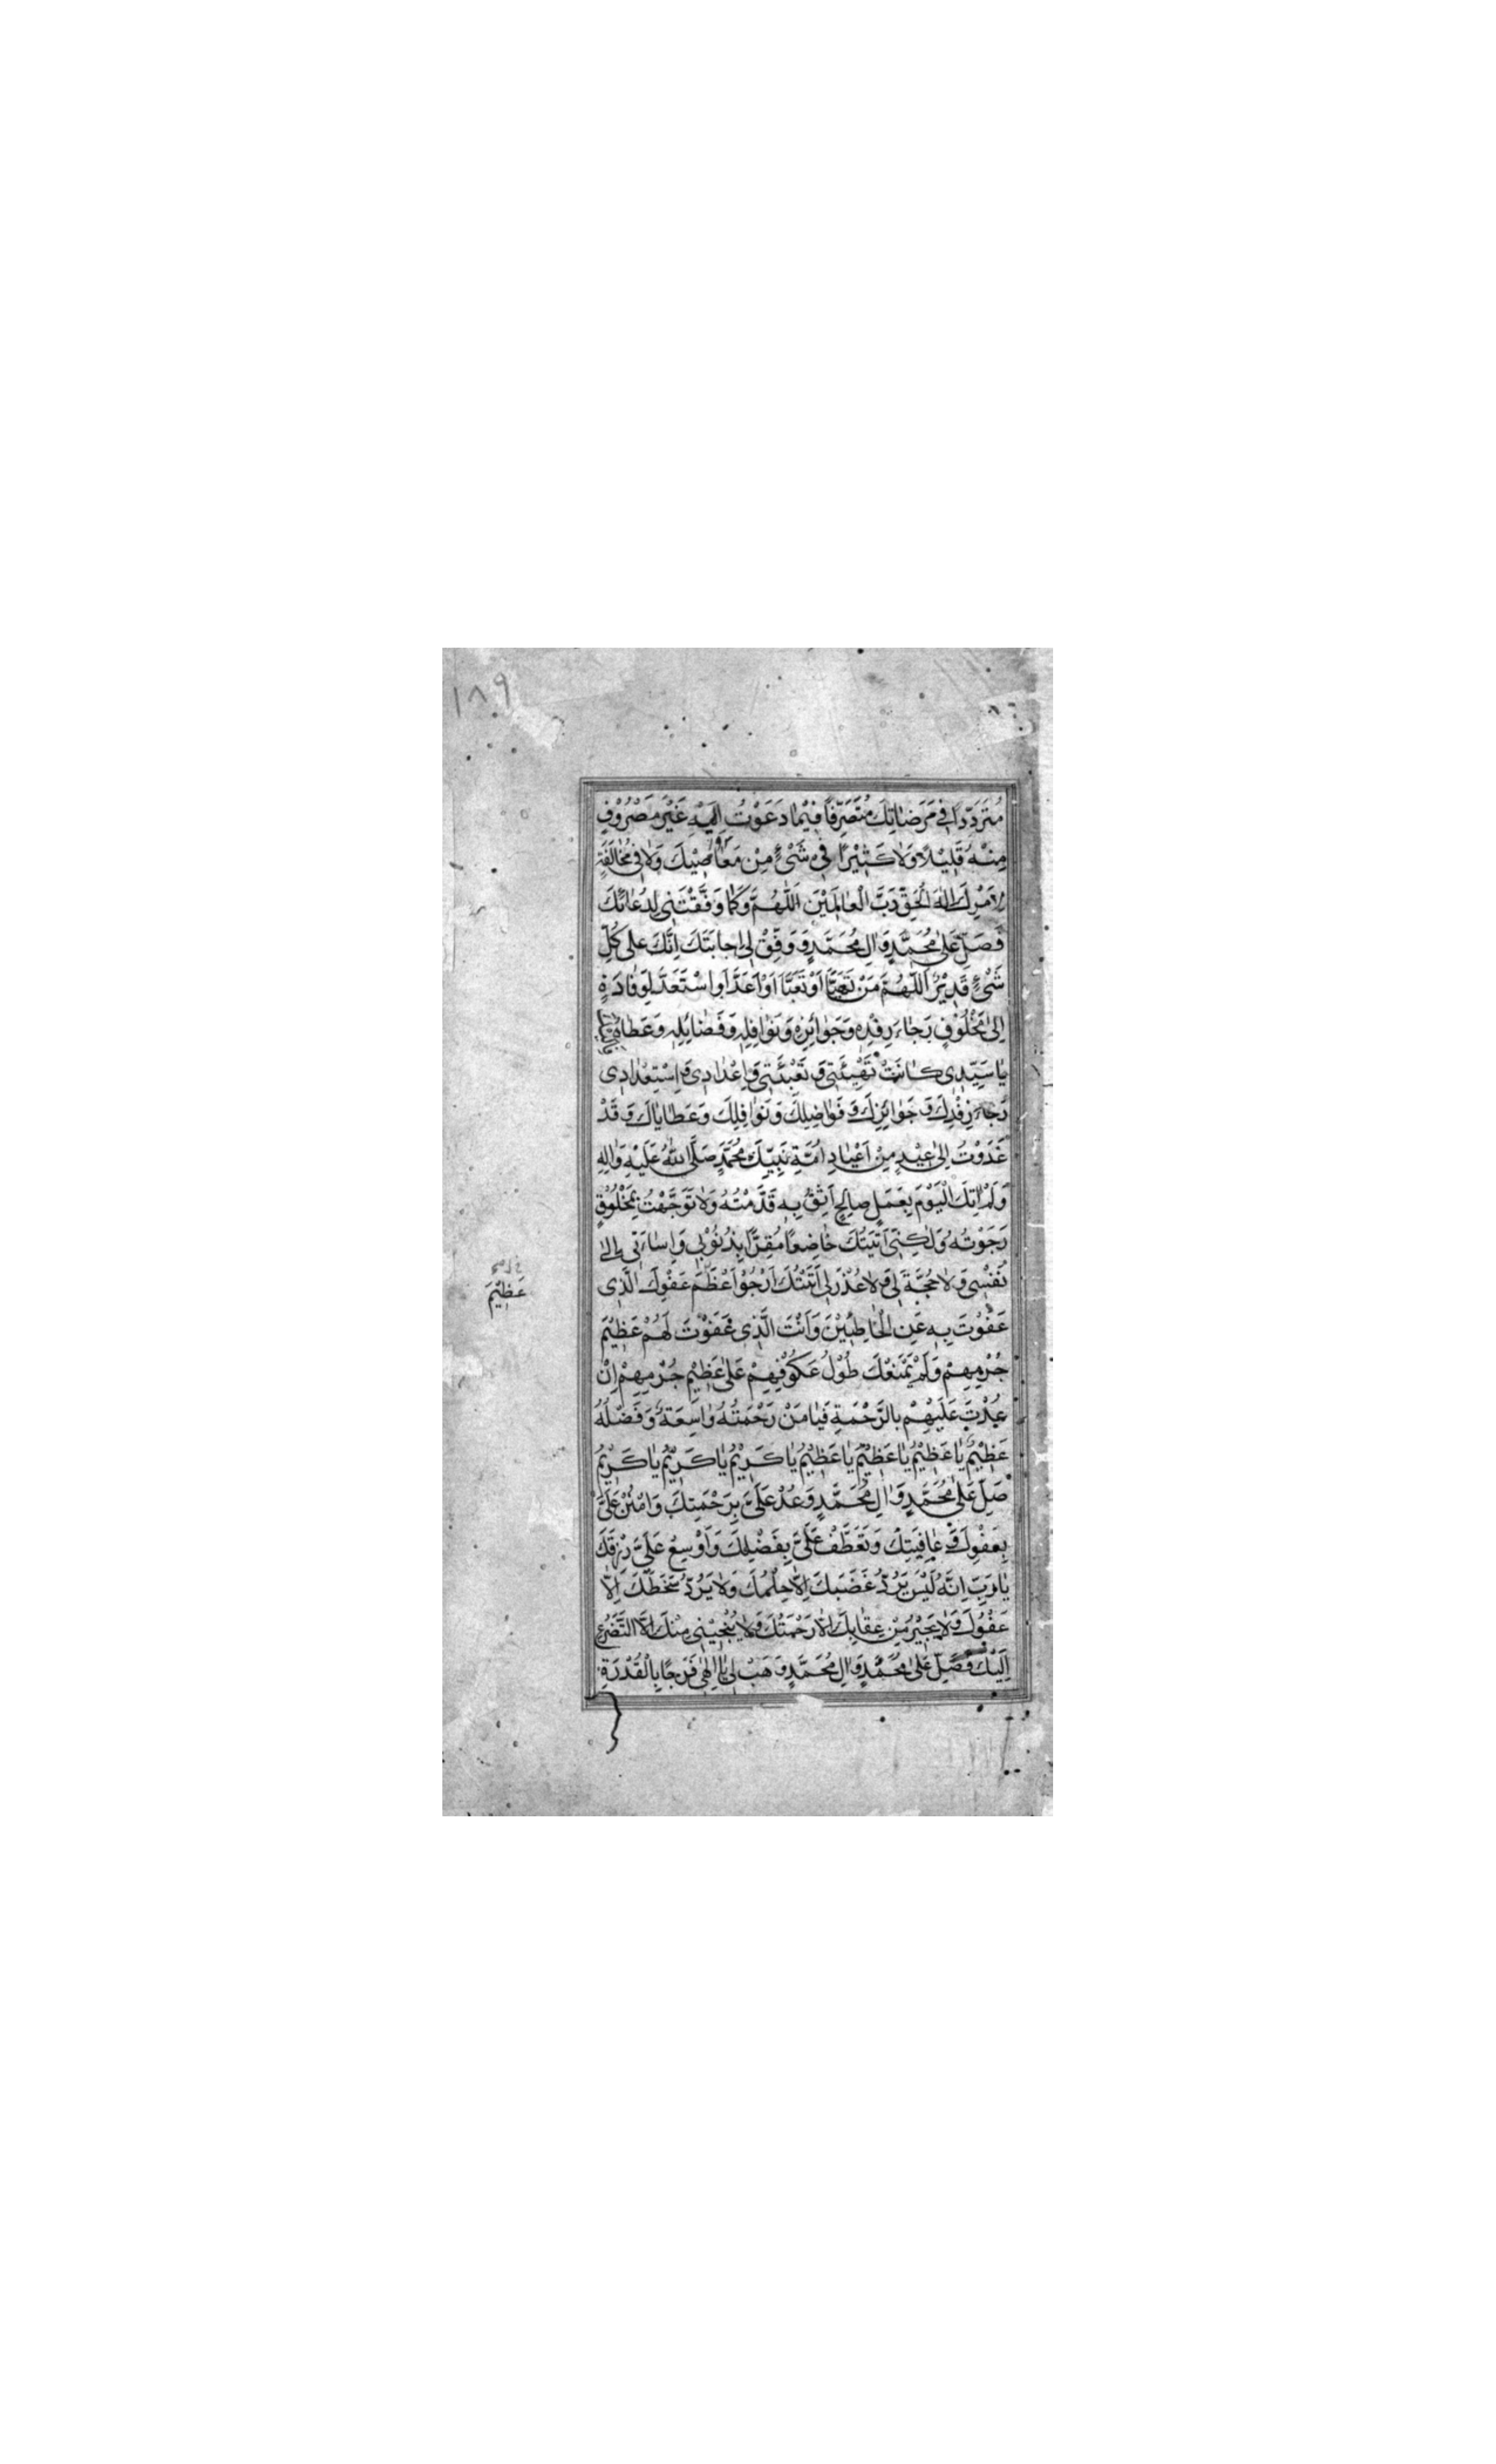 ١٨٩
مُتَرَدِّدًا فِي مَرَضَاتِكَ مُتَصَرِّفًا فِيْمَا دَعَوْتُ اِلَيْهِ غَيْرَ مَصْرُوْفٍ
مِنْهُ قَلِيْلًا وَلَا كَثِيْرًا فِي شَيْءٍ مِنْ مَعَاصِيْكَ وَلَا فِي مُخَالَفَةٍ
لِاَمْرِكَ اِلٰهَ الْحَقِّ رَبَّ الْعَالَمَيْنَ اَللّٰهُمَّ وَكَمَا وَفَّقْتَنِي لِدُعَائِكَ
فَصَلِّ عَلٰى مُحَمَّدٍ وَاٰلِ مُحَمَّدٍ وَوَفِّقْ لِي اِجَابَتَكَ اِنَّكَ عَلٰى كُلِّ
شَيْءٍ قَدِيْرٌ اَللّٰهُمَّ مَنْ تَهَيَّأَ اَوْ تَعَبَّأَ اَوْ اَعَدَّ اَوِ اسْتَعَدَّ لِوِفَادَةٍ
اِلٰى مَخْلُوْقٍ رَجَاءَ رِفْدِهِ وَجَوَائِزِهِ وَنَوَافِلِهِ وَفَضَائِلِهِ وَعَطَايَاهُ
يَا سَيِّدِي كَانَتْ تَهْيِئَتِي وَتَعْبِئَتِي وَاِعْدَادِي وَاسْتِعْدَادِي
رَجَاءَ رِفْدِكَ وَجَوَائِزِكَ وَفَوَاضِلِكَ وَنَوَافِلِكَ وَعَطَايَاكَ وَقَدْ
غَدَوْتُ اِلٰى عِيْدٍ مِنْ اَعْيَادِ اُمَّةِ نَبِيِّكَ مُحَمَّدٍ صَلَّى اللّٰهُ عَلَيْهِ وَاٰلِهِ
وَلَمْ اٰتِكَ الْيَوْمَ بِعَمَلٍ صَالِحٍ اَثِقُ بِهِ قَدَّمْتُهُ وَلَا تَوَجَّهْتُ بِمَخْلُوْقٍ
رَجَوْتُهُ وَلٰكِنِّي اَتَيْتُكَ خَاضِعًا مُقِرًّا بِذُنُوْبِي وَاِسَاءَتِي اِلٰى
نَفْسِي وَلَا حُجَّةَ لِي وَلَا عُذْرَ لِي اَتَيْتُكَ اَرْجُوْ اَعْظَمَ عَفْوِكَ الَّذِي
عَظِيْمَ
عَفَوْتَ بِهِ عَنِ الْخَاطِئِيْنَ وَاَنْتَ الَّذِي غَفَوْتَ لَهُمْ عَظِيْمَ
جُرْمِهِمْ وَلَمْ يَمْنَعْكَ طُوْلُ عُكُوْفِهِمْ عَلٰى عَظِيْمِ جُرْمِهِمْ اِنْ
عُدْتَ عَلَيْهِمْ بِالرَّحْمَةِ فَيَا مَنْ رَحْمَتُهُ وَاسِعَةٌ وَفَضْلُهُ
عَظِيْمٌ يَا عَظِيْمُ يَا عَظِيْمُ يَا عَظِيْمُ يَا كَرِيْمُ يَا كَرِيْمُ يَا كَرِيْمُ
صَلِّ عَلٰى مُحَمَّدٍ وَاٰلِ مُحَمَّدٍ وَعُدْ عَلَيَّ بِرَحْمَتِكَ وَامْنُنْ عَلَيَّ
بِعَفْوِكَ وَعَافِيَتِكَ وَتَعَطَّفْ عَلَيَّ بِفَضْلِكَ وَاَوْسِعْ عَلَيَّ رِزْقَكَ
يَا رَبِّ اِنَّهُ لَيْسَ يَرُدُّ غَضَبَكَ اِلَّا حِلْمُكَ وَلَا يَرُدُّ سَخَطَكَ اِلَّا
عَفْوُكَ وَلَا يُجِيْرُ مِنْ عِقَابِكَ اِلَّا رَحْمَتُكَ وَلَا يُنْجِيْنِي مِنْكَ اِلَّا التَّضَرُّعُ
اِلَيْكَ فَصَلِّ عَلٰى مُحَمَّدٍ وَاٰلِ مُحَمَّدٍ وَهَبْ لِي يَا اِلٰهِي فَرَجًا بِالْقُدْرَةِ